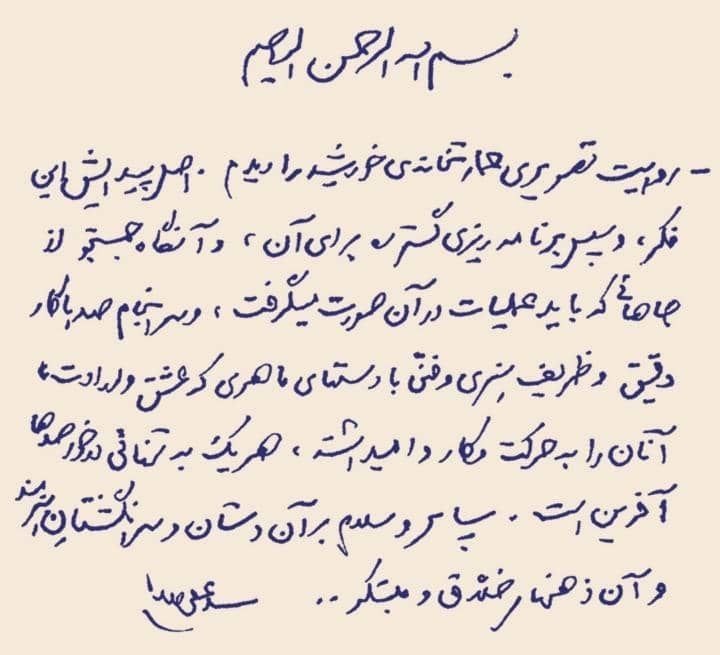 بسم الله الرحمن الرحیم
- روایت تصویری خورشید را دیدم . اصل پیدایش این
فکر، و سپس برنامه ریزی گسترده برای آن، و آنگاه جستجو از
جاهائی که باید عملیات در آن صورت میگرفت، و سرانجام صدها کار
دقیق و ظریف هنری و فنّی با دستهای ماهری که عشق و ارادت،
آنان را به حرکت و کار وامیداشته، هر یک به تنهائی درخور صدها
آفرین است . سپاس و سلام بر آن دستان و سرانگشتان هنرمند
و آن ذهنهای خلّاق و مبتکر ..